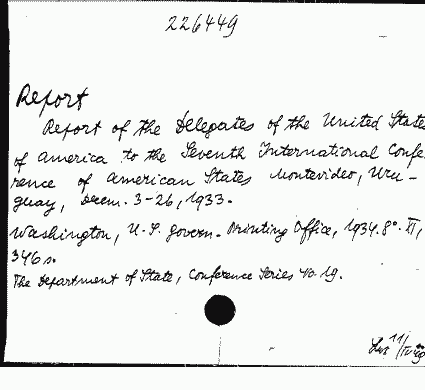 226449
Report
Report of the Delegates of the United States
of America to the Seventh International Confe-
rence of American States Montevideo, Uru-
guay, Decem. 3-26, 1933.
Washington, U.S. Govern. Printing Office, 1934. 8° XI,
346 s.
The Department of State, Conference Series No 19.
11/IV